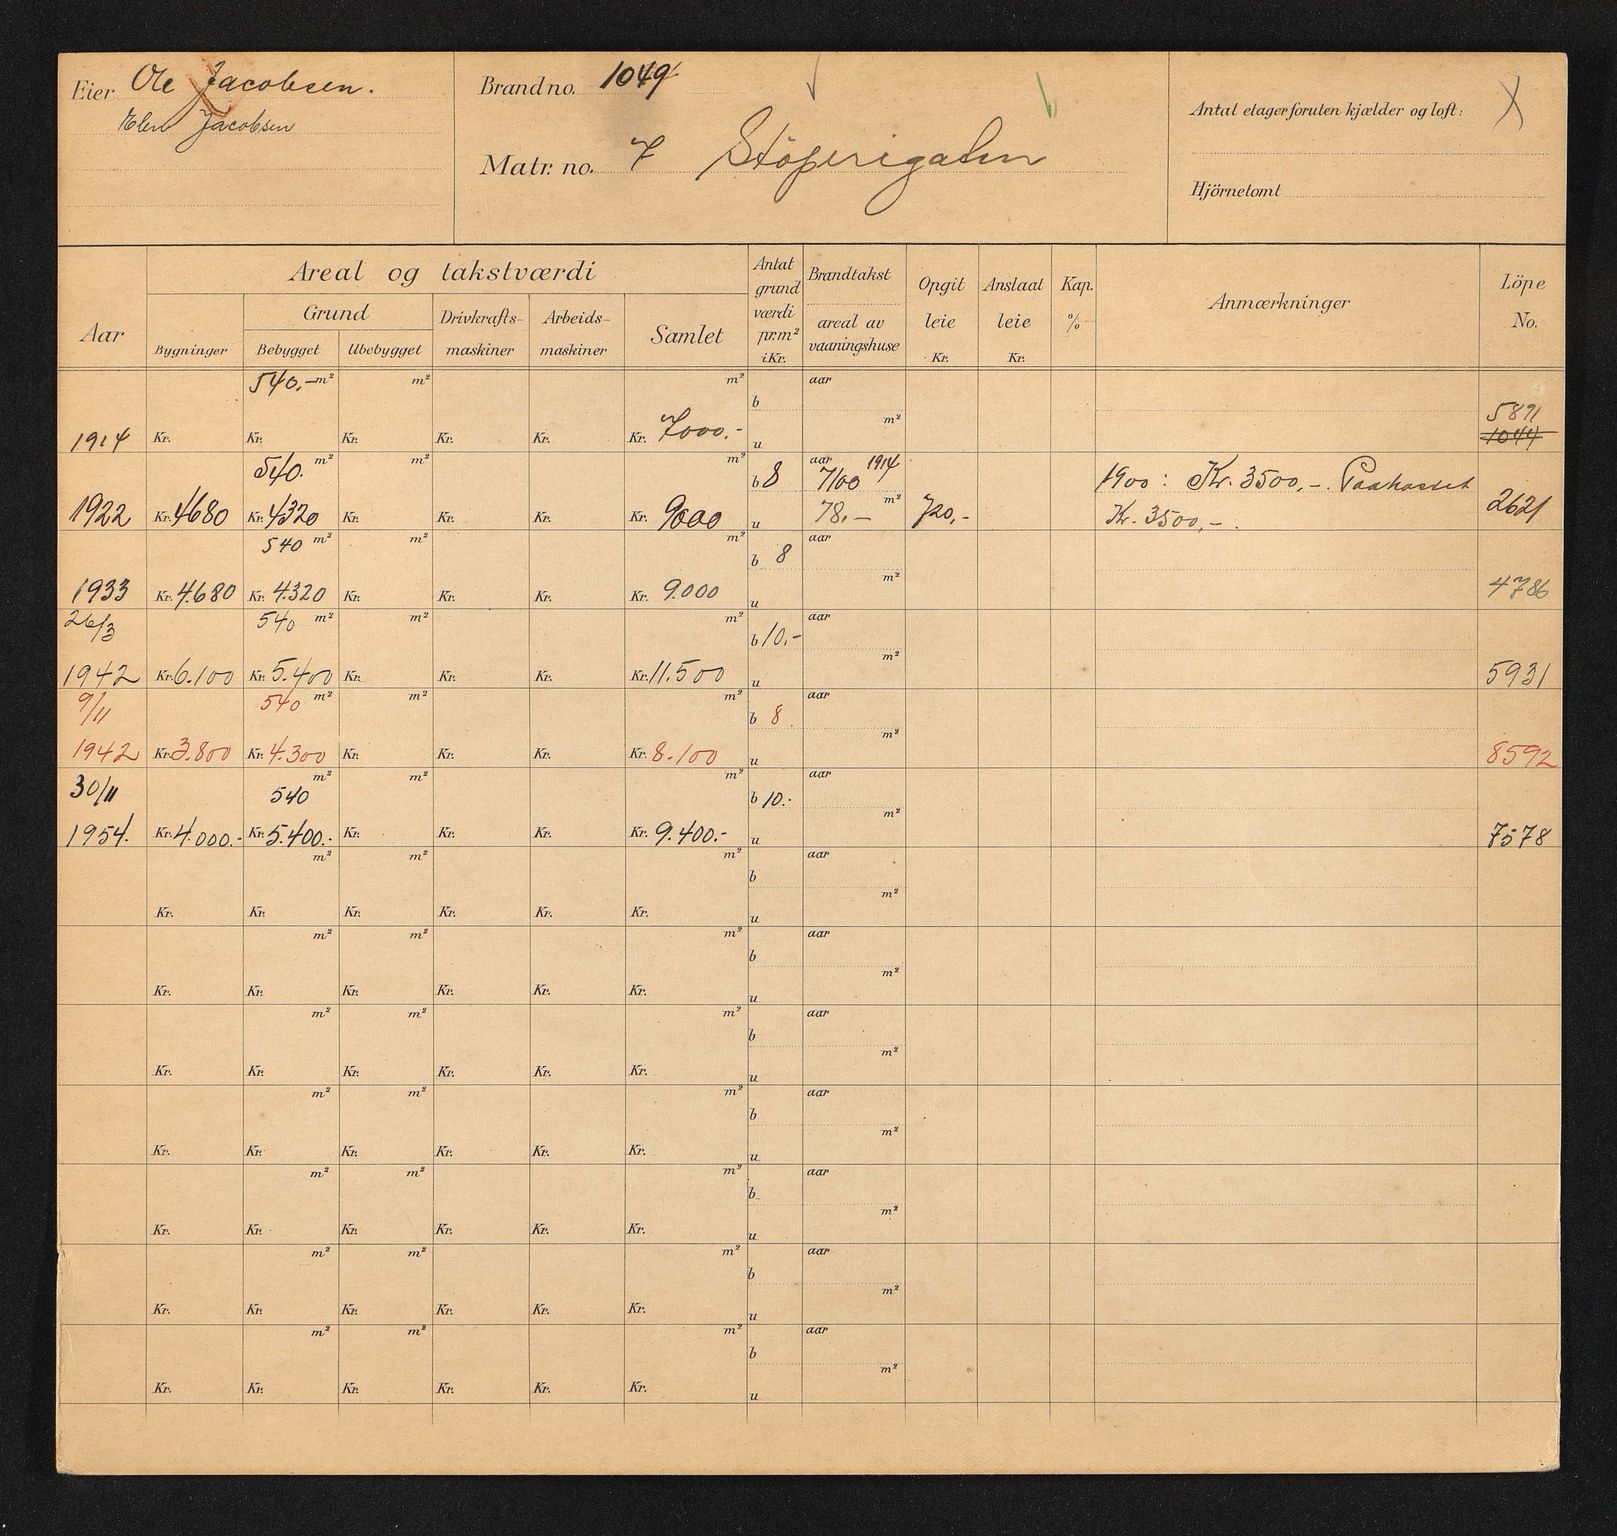 Eier Ole Jacobsen.
Elen Jacobsen
Brand no. 1049
Matr. no. 7 Støperigaten
Antal etager foruten kjælder og loft:
Hjörnetomt
Aar
Areal og takstværdi
Bygninger
Grund
Bebygget
Ubebygget
Drivkrafts-maskiner
Arbeids-maskiner
Samlet
Antat grund værdi pr. m² i Kr.
Brandtakst
areal av vaaningshuse
Opgit leie Kr.
Anslaat leie Kr.
Kap. %
Anmærkninger
Löpe No.
540.- m² m² m² aar
b m² 5891
1914 Kr. Kr. Kr. Kr. Kr. Kr. 7000.- u 1044
540. m² m² m² b 8 aar 7100 1914 1900: Kr. 3500,-. Paakostet
1922 Kr. 4680 Kr. 4320 Kr. Kr. Kr. Kr. 9000 u 78,- m² 720,- Kr. 3500,-. 2621
540 m² m² m² b 8 aar
1933 Kr. 4.680 Kr. 4.320 Kr. Kr. Kr. Kr. 9.000 u m² 4786
26/3 540 m² m² m² b 10.- aar
1942 Kr. 6.100 Kr. 5.400 Kr. Kr. Kr. Kr. 11.500 u m² 5931
9/11 540 m² m² m² b 8 aar
1942 Kr. 3.800 Kr. 4.300 Kr. Kr. Kr. Kr. 8.100 u m² 8592
30/11 540 m² m² m² b 10.- aar
1954. Kr. 4.000.- Kr. 5.400.- Kr. Kr. Kr. Kr. 9.400.- u m² 7578
m² m² m² b aar
Kr. Kr. Kr. Kr. Kr. Kr. u m²
m² m² m² b aar
Kr. Kr. Kr. Kr. Kr. Kr. u m²
m² m² m² b aar
Kr. Kr. Kr. Kr. Kr. Kr. u m²
m² m² m² b aar
Kr. Kr. Kr. Kr. Kr. Kr. u m²
m² m² m² b aar
Kr. Kr. Kr. Kr. Kr. Kr. u m²
m² m² m² b aar
Kr. Kr. Kr. Kr. Kr. Kr. u m²
m² m² m² b aar
Kr. Kr. Kr. Kr. Kr. Kr. u m²